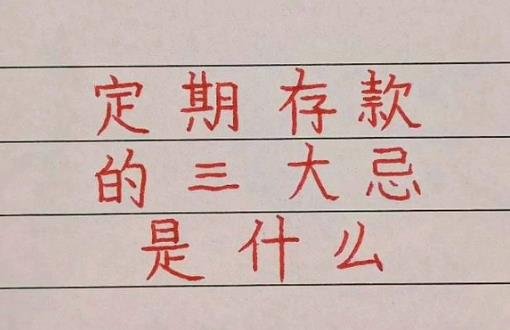 定期存款
的三大忌
是什么